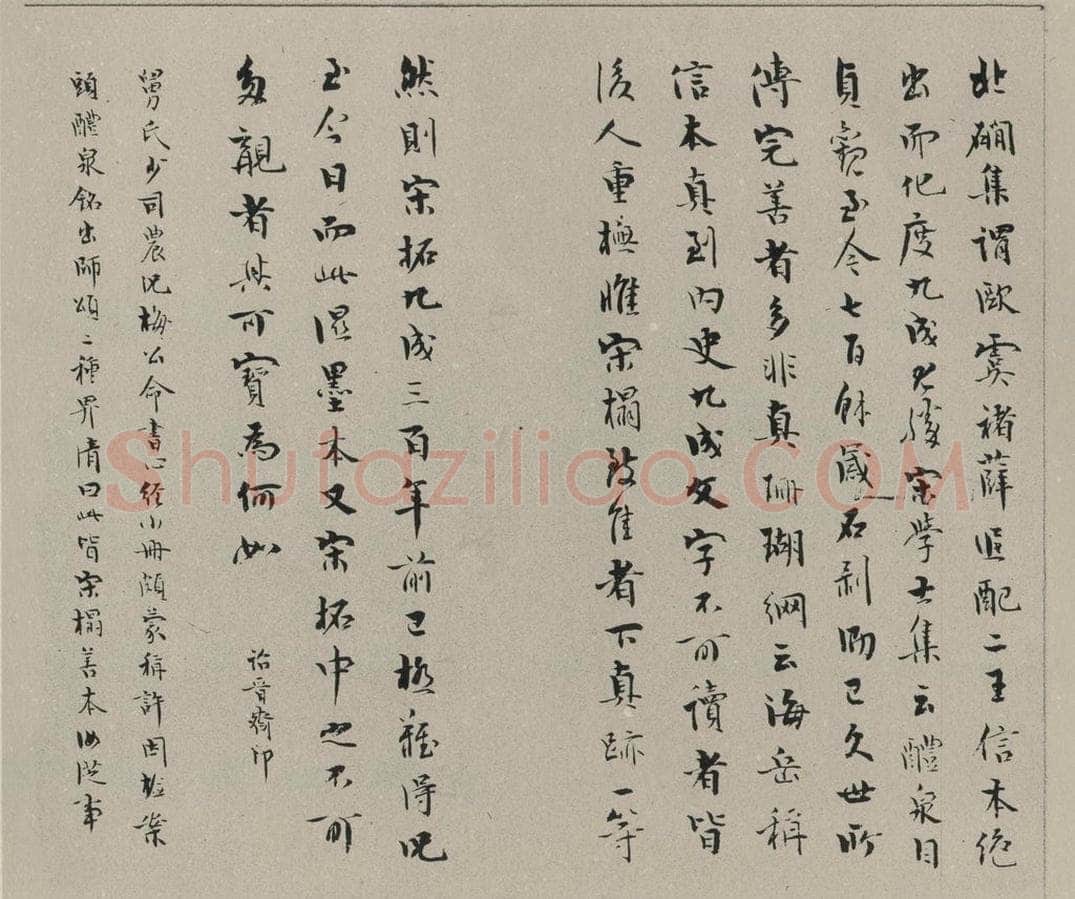 北磵集謂歐虞褚薛追配二王信本絕
出而化度九成尤勝宋學士集云醴泉自
貞觀至今七百餘歲石剥泐已久世所
傳完善者多非真珊瑚網云海岳稱
信本真到内史九成文字不可讀者皆
後人重橅唯宋搨致佳者下真跡一等
然則宋拓九成三百年前已極難得況
至今日而此濕墨本又宋拓中之不可
多覯者其可寶為何如
詒晉齋印
舅氏少司農況梅公命書心經小冊頗蒙稱許因檢案
頭醴泉銘出師頌二種畀清曰此皆宋搨善本汝從事
Shufaziliao.COM